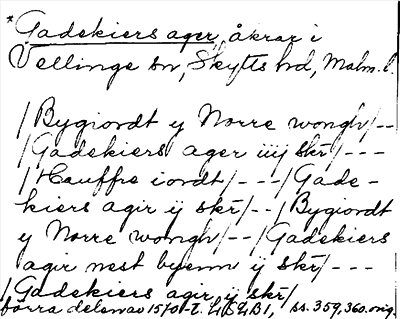 *Gadekiers ager, åkrar i
Vellinge sn, Skytts hd, Malm. l.
/Bygiordt y Norre wongh/--
/Gadekiers ager iiij skr/---
/Hauffre iordt/---/Gade-
kiers agir ij skr/--/Bygiordt
y Norre wongh/--/Gadekiers
agir nest byenn ij skr/---
/Gadekiers agir ij skr/
förra delen av 1570-t. LLB1, ss. 359, 360. orig.